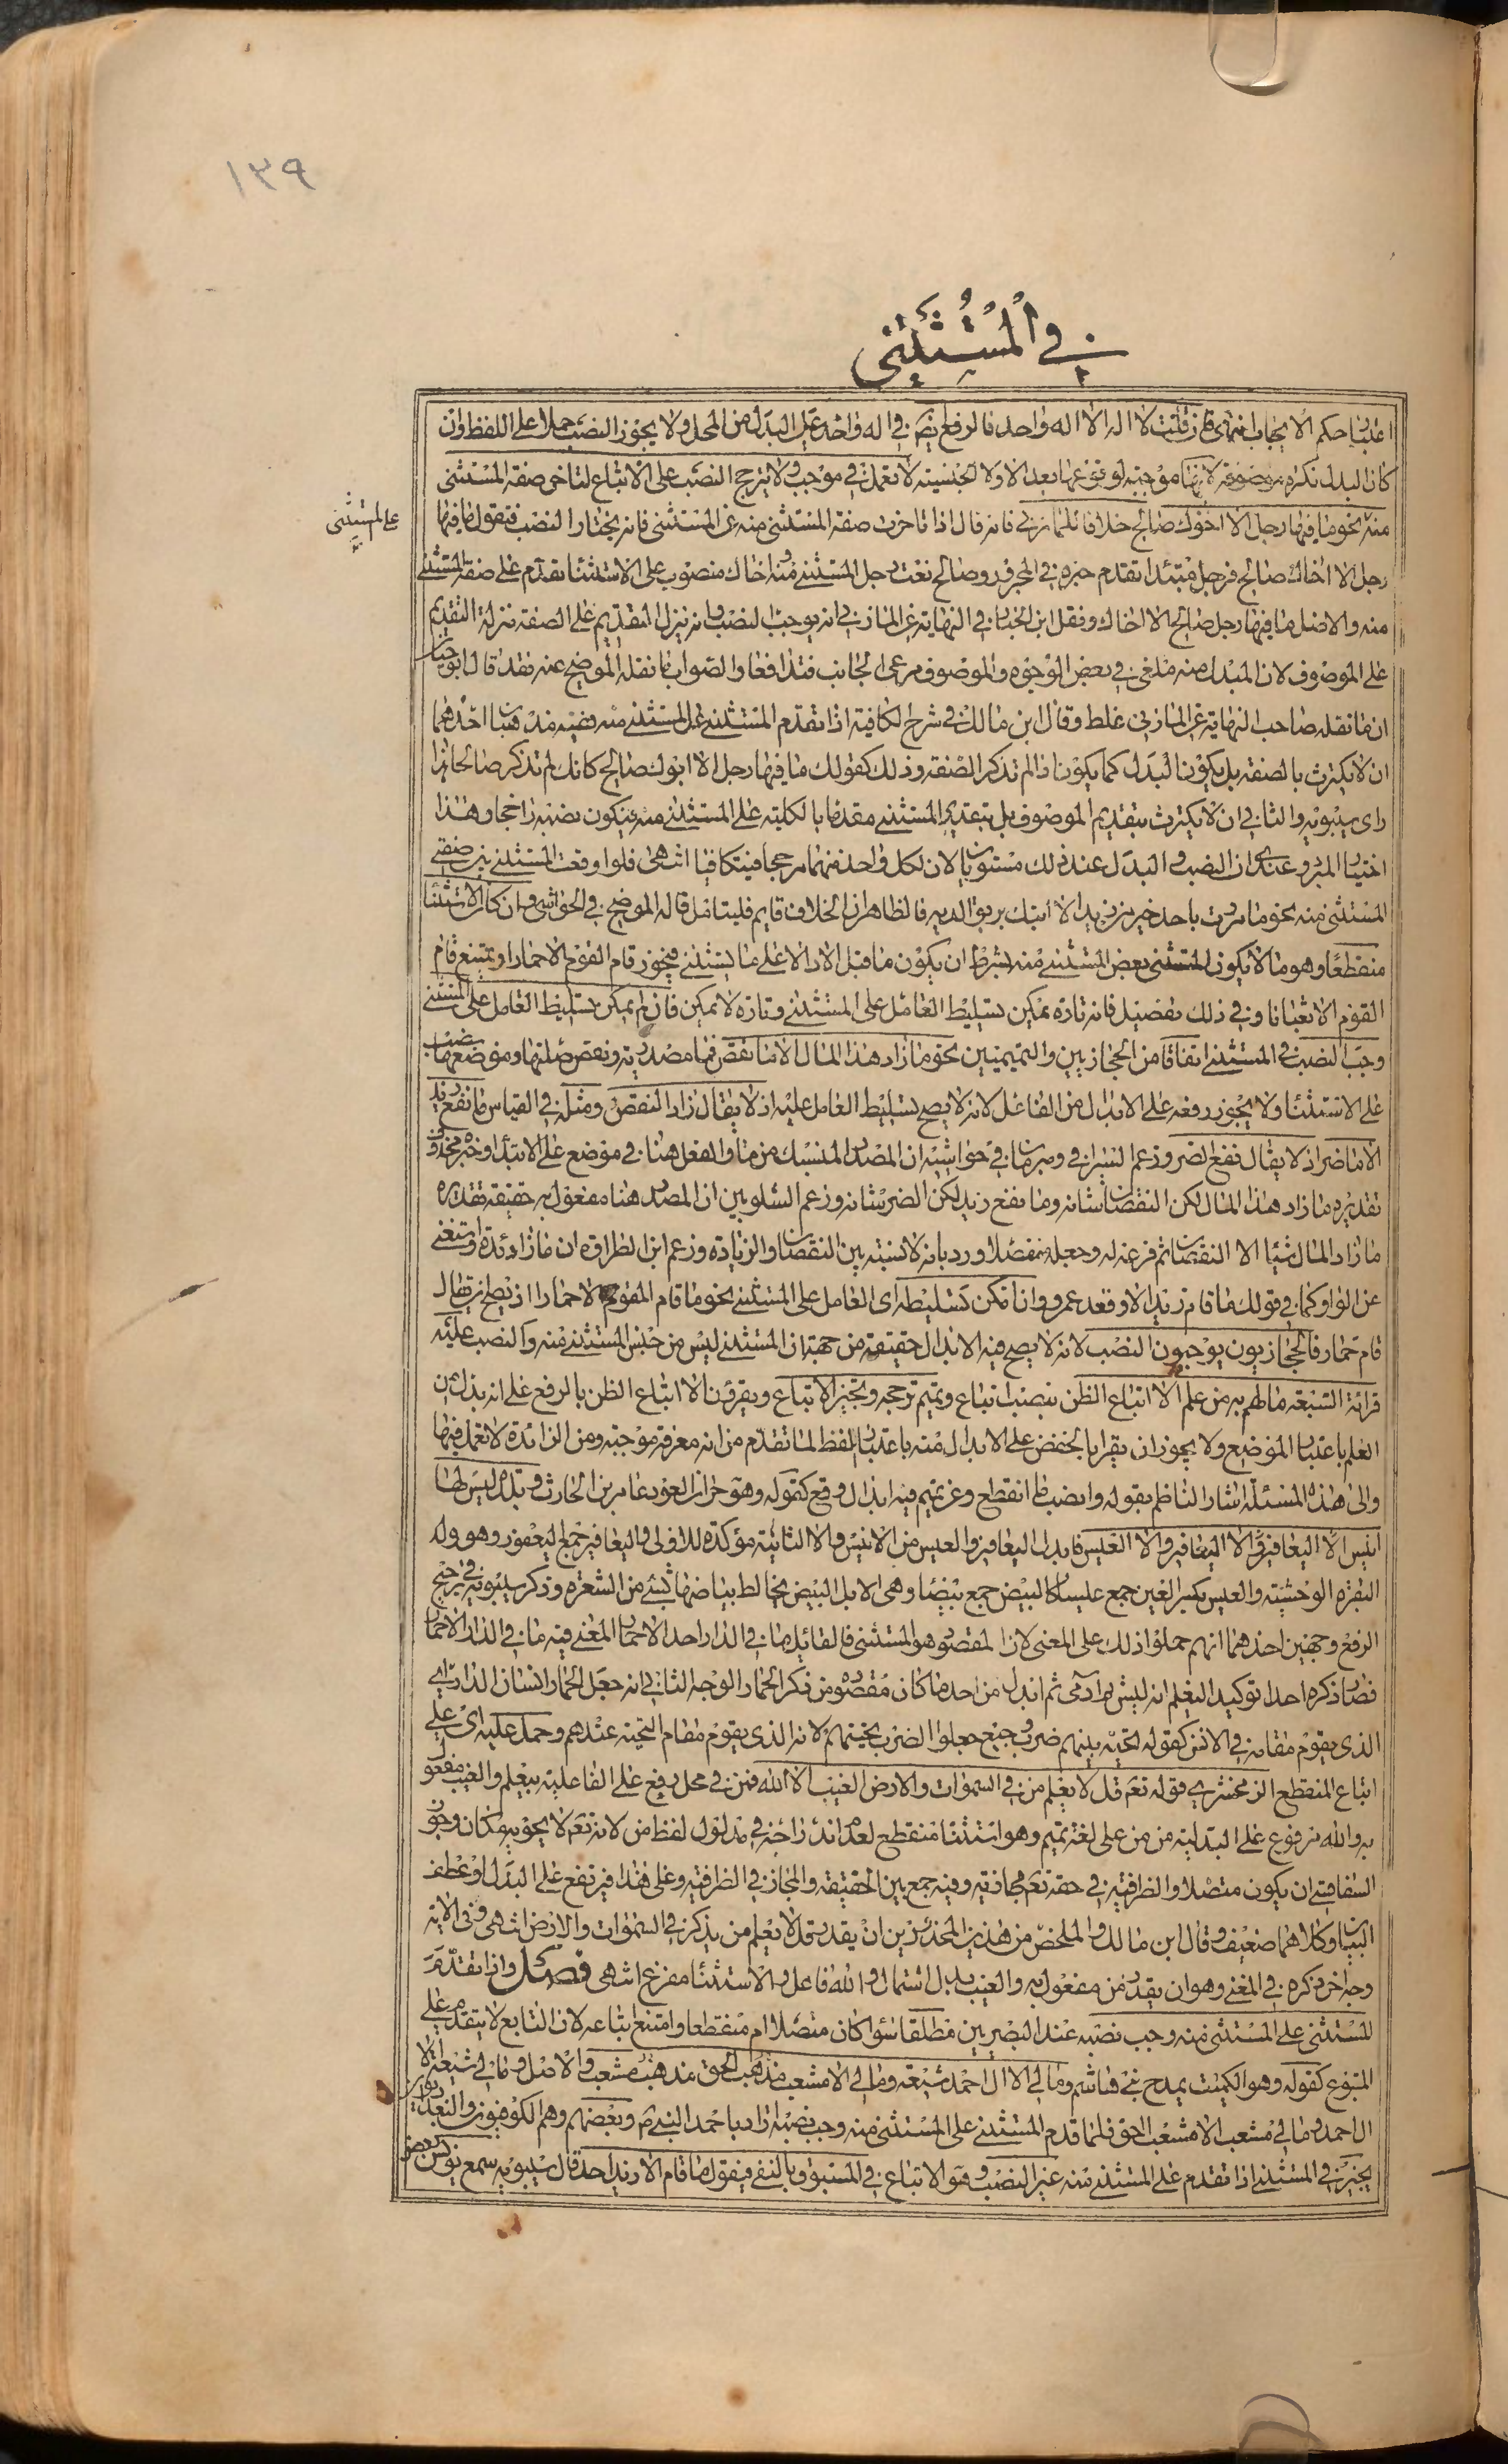 ١٣٩
في المستثنى
اعتبار حكم الايجاب انتهى فان قلت لا اله الا اله واحد فالرفع نص في اله واحد على البدل من المحل ولا يجوز النصب حملا على اللفظ وان
كان البدل نكرة موصوفة لانها موجبة لوقوعها بعد الا ولا الجنسية لا تعمل في موجب ولا يترجح النصب على الاتباع لتاخر صفة المستثنى
منه نحو ما فيها رجل الا اخوك صالح خلافا للمازني فانه قال اذا تاخرت صفة المستثنى منه عن المستثنى فانه يختار النصب فتقول ما فيها
على المستثنى
رجل الا اخاك صالح فرجل مبتدا تقدم خبره في المجرور وصالح نعت رجل المستثنى منه واخاك منصوب على الاستثنا تقدم على صفة المستثنى
منه والاصل ما فيها رجل صالح الا اخاك ونقل ابن الخباز في النهاية عن المازني انه يوجب النصب وانه نزل التقديم على الصفة منزلة التقديم
على الموصوف لان المبدل منه ملغى في بعض الوجوه والموصوف مرعى الجانب فتدافعا والصواب ما نقله الموضح عنه فقد قال ابو حيان
ان ما نقله صاحب النهاية عن المازني غلط وقال ابن مالك في شرح الكافية اذا تقدم المستثنى على المستثنى منه ففيه مذهبان احدهما
ان لا يكترث بالصفة بل يكون البدل كما يكون اذا لم تذكر الصفة وذلك كقولك ما فيها رجل الا ابوك صالح كانك لم تذكر صالحا وهذا
راى سيبويه والثاني ان لا يكترث بتقديم الموصوف بل تقدير المستثنى مقدما بالكلية على المستثنى منه فيكون نصبه راجحا وهذا
اختيار المبرد وعندى ان النصب والبدل عند ذلك مستويان لان لكل واحد منهما مرجحا فيتكافيا انتهى فلو وقعت المستثنى بين صفتي
المستثنى منه نحو ما مررت باحد خير من زيد الا ابنك بر بوالديه فالظاهر ان الخلاف قايم فليتامل قاله الموضح في الحواشي وان كان الاستثنا
منقطعا وهو ما لا يكون المستثنى بعض المستثنى منه بشرط ان يكون ما قبل الا دالا على ما يستثنى فيجوز قام القوم الا حمارا ويمتنع قام
القوم الا ثعبانا وفي ذلك تفصيل فانه تارة يمكن تسليط العامل على المستثنى وتارة لا يمكن فان لم يمكن تسليط العامل على المستثنى
وجب النصب في المستثنى اتفاقا من الحجازيين والتميميين نحو ما زاد هذا المال الا ما نقص فما مصدرية ونقص صلتها وموضعها نصب
على الاستثنا ولا يجوز رفعه على الابدال من الفاعل لانه لا يصح تسليط العامل عليه اذ لا يقال زاد النقص ومثله في القياس ما نفع زيد
الا ما ضر اذ لا يقال نفع الضر وزعم السيرافي ومبرمان في حواشيه ان المصدر المنسبك من ما والفعل هنا في موضع على الابتدا وخبره محذوف
تقديره ما زاد هذا المال لكن النقصان شانه وما نفع زيد لكن الضر شانه وزعم الشلوبين ان المصدر هنا مفعول به حقيقة تقديره
ما زاد المال شيئا الا النقصان ثم فرغ له وجعله متصلا ورد بانه لا نسبة بين النقصان والزيادة وزعم ابن الطراوة ان ما زائدة واستغنى
عن الواو كما في قولك ما قام زيد الا وقعد عمرو وان امكن تسليطه اى العامل على المستثنى نحو ما قام القوم الا حمارا اذ يصح ان يقال
قام حمار فالحجازيون يوجبون النصب لانه لا يصح فيه الابدال حقيقة من جهة ان المستثنى ليس من جنس المستثنى منه والنصب عليه
قرائة السبعة ما لهم به من علم الا اتباع الظن بنصب اتباع وتميم ترجحه وتجيز الاتباع ويقرؤن الا اتباع الظن بالرفع على انه بدل من
العلم باعتبار الموضع ولا يجوز ان يقرا بالخفض على الابدال منه باعتبار اللفظ لما تقدم من انه معرفة موجبة ومن الزائدة لا تعمل فيها
والى هذه المسئلة اشار الناظم بقوله وانصب ما انقطع وعن تميم فيه ابدال وقع كقوله وهو جران العود عامر بن الحارث وبلدة ليس لها
انيس الا اليعافير والا العيس فابدل اليعافير والعيس من الانيس والا الثانية مؤكدة للاولى واليعافير جمع اليعفور وهو ولد
البقرة الوحشية والعيس بكسر العين جمع عيساء كالبيض جمع بيضاء وهى الابل البيض يخالط بياضها شيء من الشقرة وذكر سيبويه في ترجيح
الرفع وجهين احدهما انهم حملوا ذلك على المعنى لان المقصود هو المستثنى فالقائل ما في الدار احد الا حمار المعنى فيه ما في الدار الا حمار
فصار ذكره احدا توكيدا ليعلم انه ليس ثم آدمى ثم ابدل من احد ما كان مقصوده من ذكر الحمار الوجه الثاني انه جعل الحمار انسان الدار اى
الذى يقوم مقامه في الانس كقوله تحية بينهم ضرب وجيع جعلوا الضرب تحيتهم لانه الذى يقوم مقام التحية عندهم وحمل عليه اى على
اتباع المنقطع الزمخشرى قوله تعم قل لا يعلم من في السموات والارض الغيب الا الله فمن في محل رفع على الفاعلية بيعلم والغيب مفعول
به والله مرفوع على البدلية من من على لغة تميم وهو استثنا منقطع لعدم اندراجه في مدلول لفظ من لانه تعم لا يحويه مكان وجوز
السفاقسي ان يكون متصلا والظرفية في حقه تعم مجازية وفيه جمع بين الحقيقة والمجاز في الظرفية وعلى هذا فيرتفع على البدل او عطف
البيان وكلاهما ضعيف وقال ابن مالك والمخلص من هذين المحذورين ان يقدر قل لا يعلم من يذكر في السموات والارض انتهى وفى الاية
وجه اخر ذكره في المغنى وهو ان يقدر من مفعول به والغيب بدل اشتمال والله فاعل والاستثنا مفرغ انتهى فصل واذا تقدم
المستثنى على المستثنى منه وجب نصبه عند البصريين مطلقا سواء كان متصلا ام منقطعا وامتنع اتباعه لان التابع لا يتقدم على
المتبوع كقوله وهو الكميت يمدح بنى هاشم وما لي الا آل احمد شيعة وما لي الا مشعب الحق مشعب والاصل وما لي شيعة الا
آل احمد وما لي مشعب الا مشعب الحق فلما قدم المستثنى على المستثنى منه وجب نصبه اراد باحمد النبي ص وبعضهم وهم الكوفيون والبغداديون
يجيز في المستثنى اذا تقدم على المستثنى منه غير النصب وهو الاتباع في المسبوق بالنفى فيقول ما قام الا زيد احد قال سيبويه سمع يونس بعض